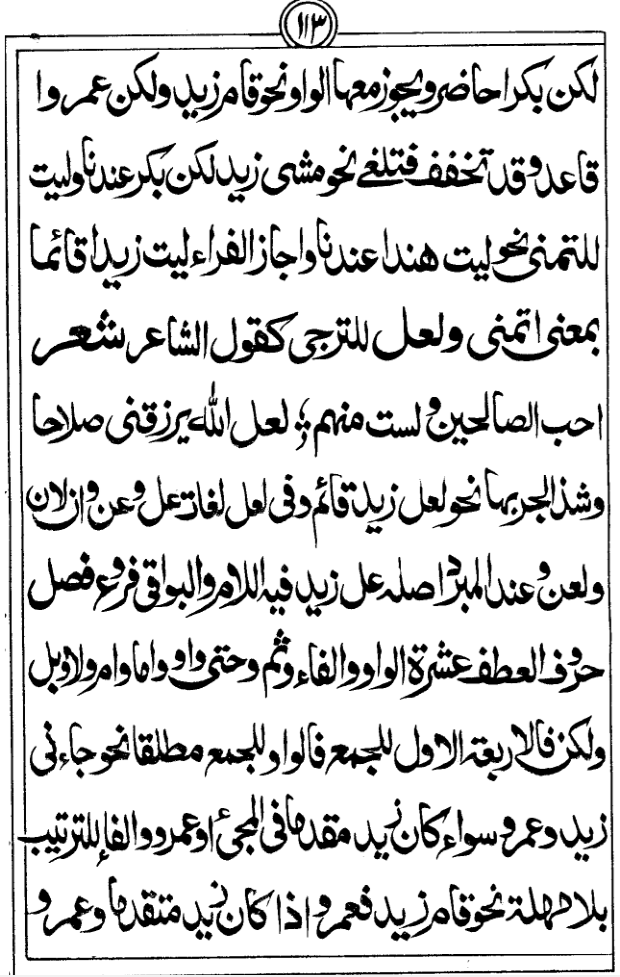 ١١٣
لكن بكرا حاضر ويجوز معها الواو نحو قام زيد ولكن عمروا
قاعد وقد تخفف فتلغى نحو مشى زيد لكن بكر عندنا وليت
للتمني نحو ليت هندا عندنا واجاز الفراء ليت زيدا قائما
بمعنى اتمنى ولعل للترجى كقول الشاعر شعر
احب الصالحين ولست منهم ؛ لعل الله يرزقنى صلاحا
وشذ الجر بها نحو لعل زيد قائم وفى لعل لغات عل وعن وان لان
ولعن وعند المبرد اصله عل زيد فيه اللام والبواقى فروع فصل
حروف العطف عشرة الواو والفاء وثم وحتى واو واما وام ولا وبل
ولكن فالاربعة الاول للجمع فالواو للجمع مطلقا نحو جاءنى
زيد وعمرو سواء كان زيد مقدما فى المجئ او عمرو والفاء للترتيب
بلا مهلة نحو قام زيد فعمرو اذا كان زيد متقدما وعمرو